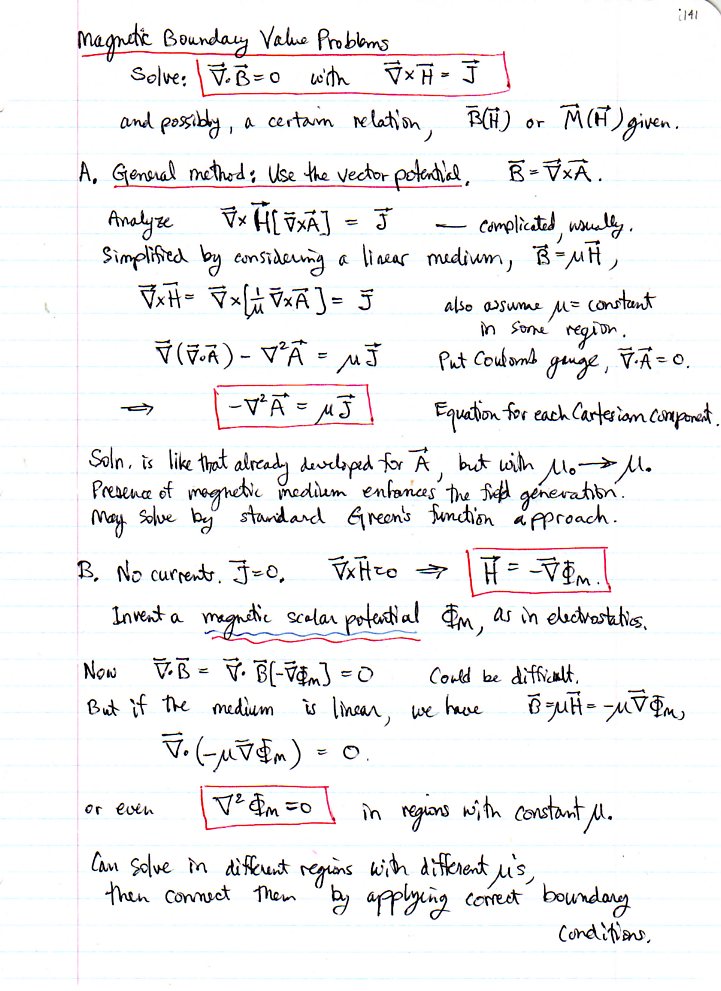 141
Magnetic Boundary Value Problems
Solve: ∇⃗·B⃗=0 with ∇⃗×H⃗ = J⃗
and possibly, a certain relation, B⃗(H⃗) or M⃗(H⃗) given.
A. General method: Use the vector potential. B⃗=∇⃗×A⃗.
Analyze ∇⃗×H⃗[∇⃗×A⃗] = J⃗ — complicated, usually.
Simplified by considering a linear medium, B⃗=μH⃗,
∇⃗×H⃗= ∇⃗×[1/μ ∇⃗×A⃗]= J⃗ also assume μ= constant
in some region.
∇⃗(∇⃗·A⃗) - ∇²A⃗ = μJ⃗ Put Coulomb gauge, ∇⃗·A⃗=0.
⇒ -∇²A⃗ = μJ⃗ Equation for each Cartesian component.
Soln. is like that already developed for A⃗, but with μ₀→μ.
Presence of magnetic medium enhances the field generation.
May solve by standard Green's function approach.
B. No currents. J⃗=0. ∇⃗×H⃗=0 ⇒ H⃗ = -∇⃗Φm.
Invent a magnetic scalar potential Φm, as in electrostatics.
Now ∇⃗·B⃗ = ∇⃗·B⃗[-∇⃗Φm] = 0 Could be difficult.
But if the medium is linear, we have B⃗=μH⃗= -μ∇⃗Φm,
∇⃗·(-μ∇⃗Φm) = 0.
or even ∇²Φm=0 in regions with constant μ.
Can solve in different regions with different μ's,
then connect them by applying correct boundary
conditions.